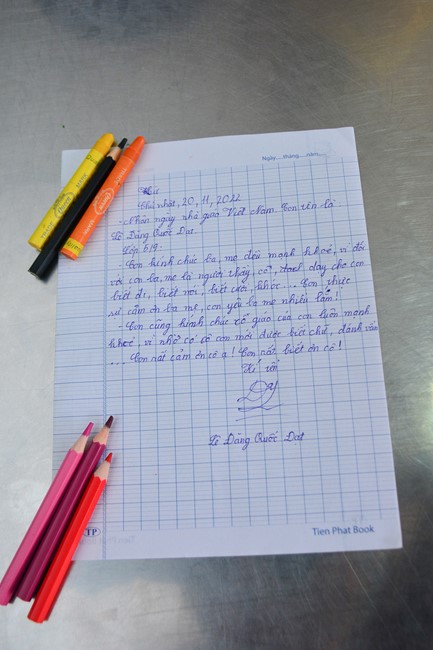 Ngày.....tháng.....năm.....
Thư
Chủ nhật, 20, 11, 2022
- Nhân ngày nhà giáo Việt Nam. Con tên là
Lê Đăng Quốc Đạt
Lớp 5/9.
- Con kính chúc ba, mẹ đều mạnh khoẻ, vì đối
với con ba, mẹ là người thầy, cô, dạy cho con
biết đi, biết nói, biết cười, khóc... Con thực
sự cảm ơn ba mẹ, con yêu ba mẹ nhiều lắm!
- Con cũng kính chúc cô giáo của con luôn mạnh
khoẻ, vì nhờ có cô con mới được biết chữ, đánh vần
... Con rất cảm ơn cô ạ! Con rất biết ơn cô!
Kí tên
Lê Đăng Quốc Đạt
TP
Tien Phat Book